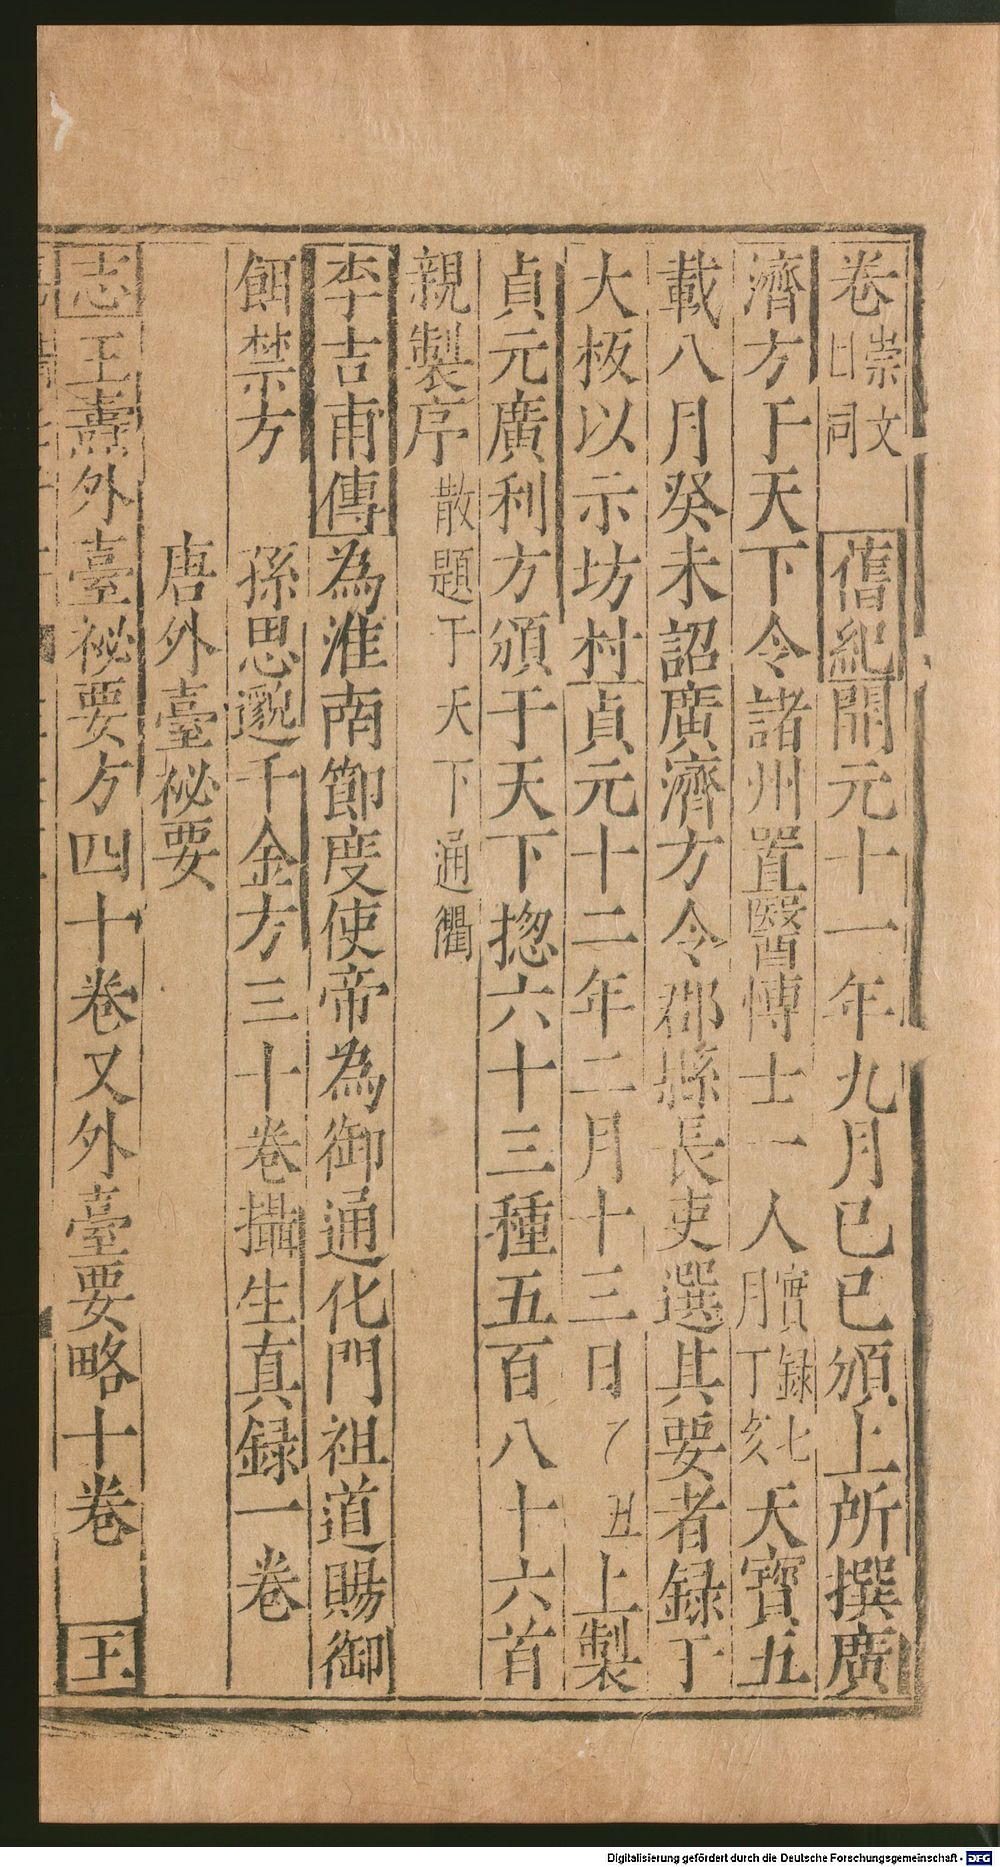 卷崇文目同 舊紀開元十一年九月己巳頒上所撰廣
濟方于天下令諸州置醫博士一人實錄七月丁亥天寶五
載八月癸未詔廣濟方令郡縣長吏選其要者録于
大板以示坊村貞元十二年二月十三日乙丑上製
貞元廣利方頒于天下揔六十三種五百八十六首
親製序散題于天下通衢
李吉甫傳為淮南節度使帝為御通化門祖道賜御
餌禁方 孫思邈千金方三十卷攝生真録一卷
唐外臺祕要
志王燾外臺祕要方四十卷又外臺要略十卷 王
Digitalisierung gefördert durch die Deutsche Forschungsgemeinschaft - DFG